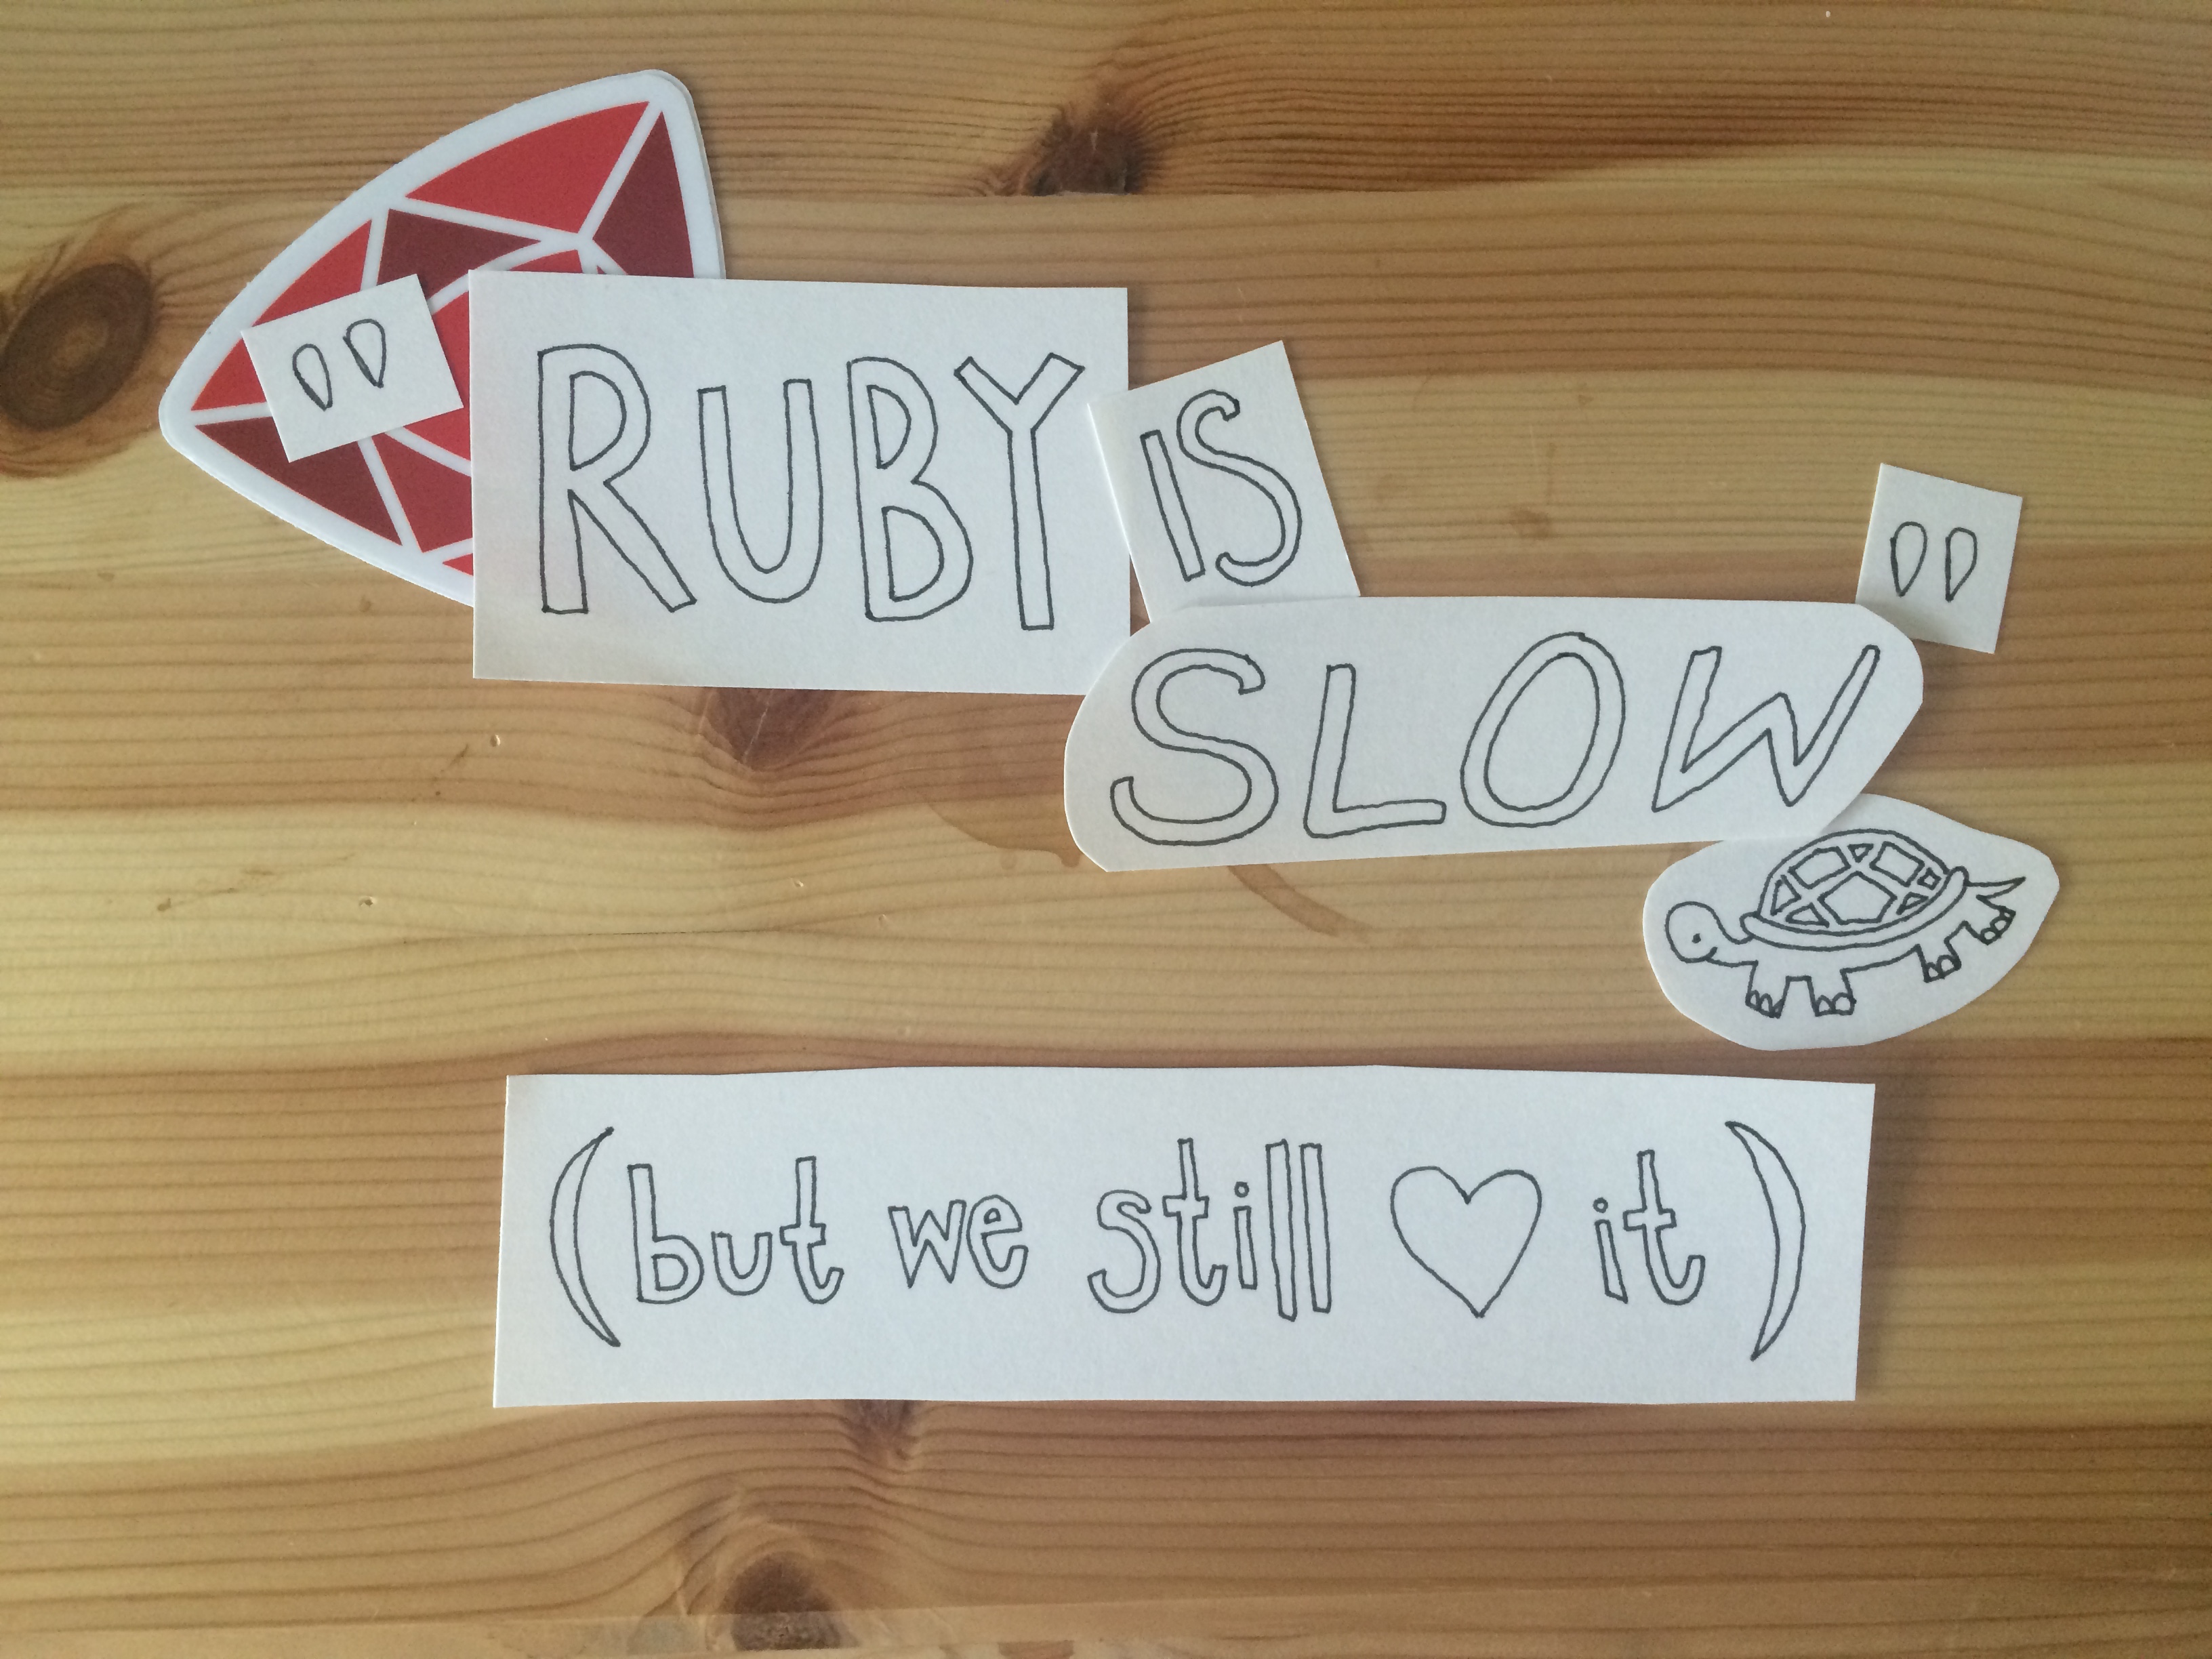 "RUBY IS
SLOW"
(but we still ♡ it)